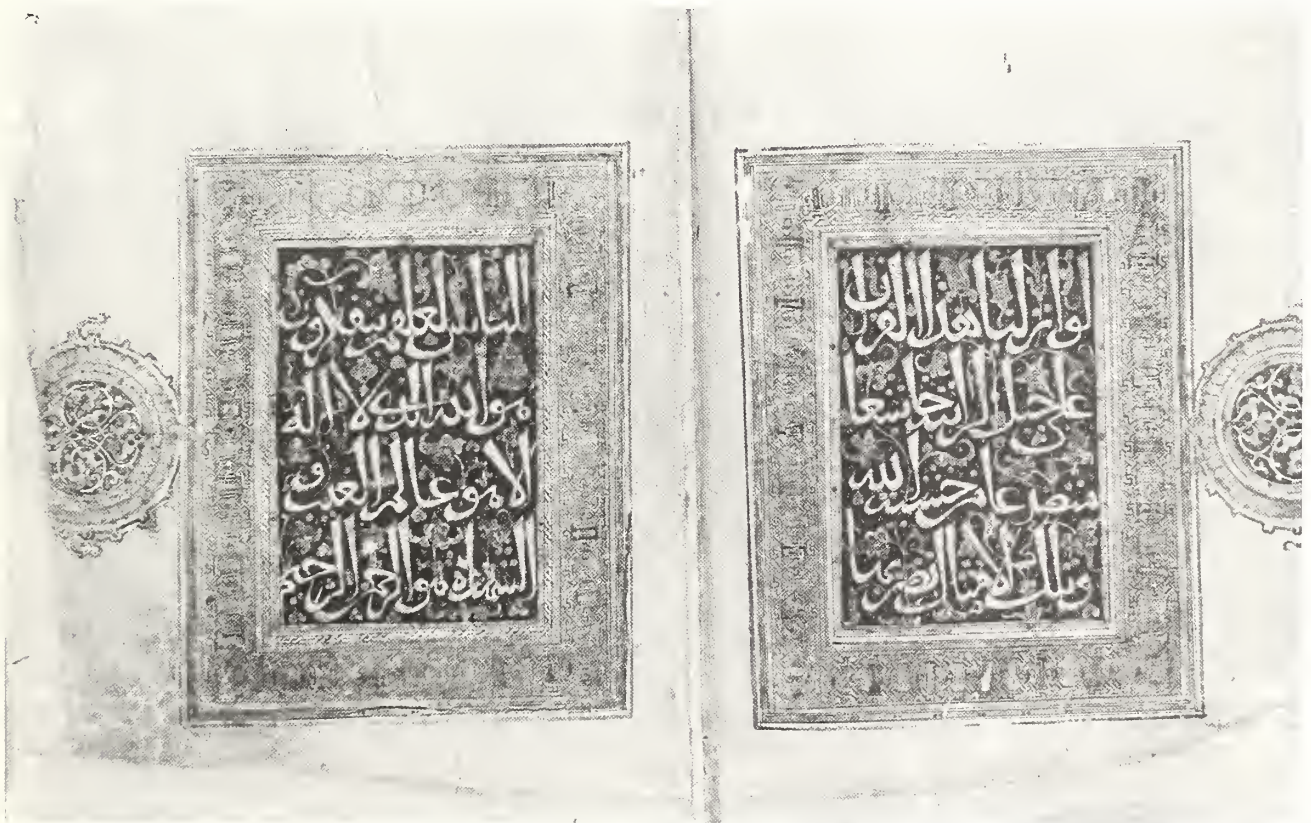 لو انزلنا هذا القران
على جبل لرايته خاشعا
متصدعا من خشية الله
وتلك الامثال نضربها
للناس لعلهم يتفكرون
هو الله الذي لا اله
الا هو عالم الغيب و
الشهادة هو الرحمن الرحيم